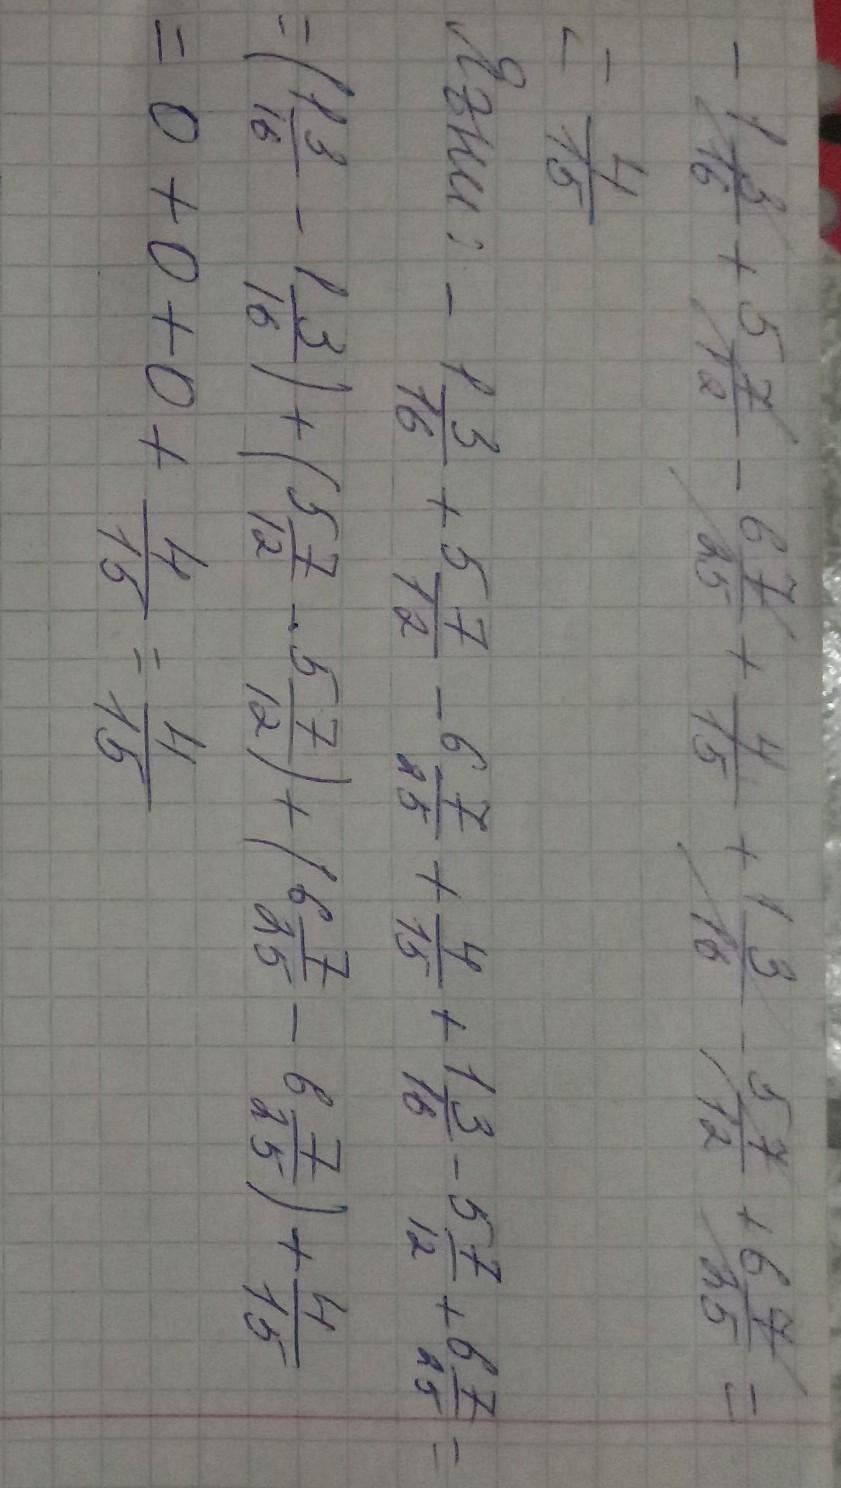 - 1 3/16 + 5 7/12 - 6 7/25 + 4/15 + 1 3/16 - 5 7/12 + 6 7/25 =
= 4/15
Яғни: - 1 3/16 + 5 7/12 - 6 7/25 + 4/15 + 1 3/16 - 5 7/12 + 6 7/25 =
= (1 3/16 - 1 3/16) + (5 7/12 - 5 7/12) + (6 7/25 - 6 7/25) + 4/15
= 0 + 0 + 0 + 4/15 = 4/15